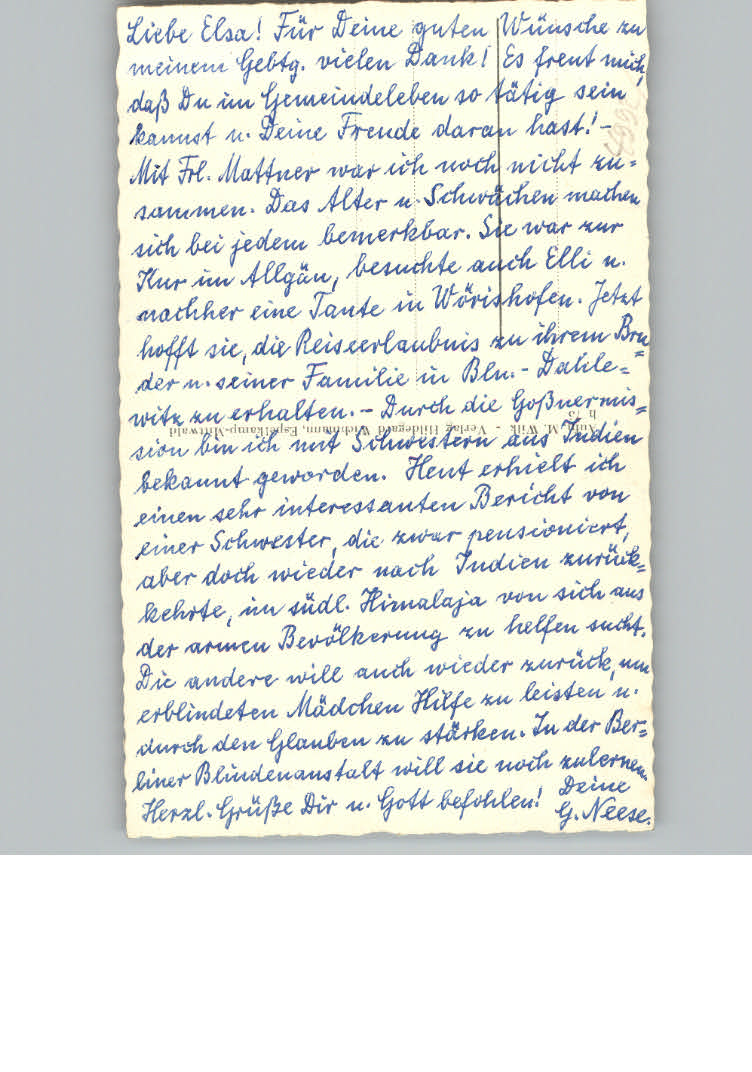 Liebe Elsa! Für Deine guten Wünsche zu
meinem Gebtg. vielen Dank! Es freut mich,
daß Du im Gemeindeleben so tätig sein
kannst u. Deine Freude daran hast! -
Mit Frl. Mattner war ich noch nicht zu=
sammen. Das Alter u. Schwächen machen
sich bei jedem bemerkbar. Sie war zur
Kur im Allgäu, besuchte auch Elli u.
nachher eine Tante in Wörishofen. Jetzt
hofft sie, die Reiseerlaubnis zu ihrem Bru=
der u. seiner Familie in Bln. - Dahle=
witz zu erhalten. - Durch die Goßnermis=
sion bin ich mit Schwestern aus Indien
bekannt geworden. Heut erhielt ich
einen sehr interessanten Bericht von
einer Schwester, die zwar pensioniert,
aber doch wieder nach Indien zurück=
kehrte, im südl. Himalaja von sich aus
der armen Bevölkerung zu helfen sucht.
Die andere will auch wieder zurück, um
erblindeten Mädchen Hilfe zu leisten u.
durch den Glauben zu stärken. In der Ber=
liner Blindenanstalt will sie noch zulernen.
Herzl. Grüße Dir u. Gott befohlen! Deine
G. Neese.
h 75
Aufn. M. Wilk - Verlag Hildegard Wiehmann, Espelkamp-Mittwald